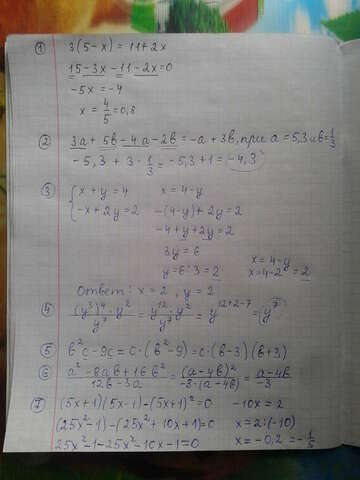 ① 3(5-x) = 11+2x
15-3x-11-2x=0
-5x=-4
x = 4/5 = 0,8
② 3a+5b-4a-2b=-a+3b, при a=5,3 и b=1/3
-5,3 + 3·1/3 = -5,3+1 = -4,3
③ { x+y=4 x=4-y
-x+2y=2 -(4-y)+2y=2
-4+y+2y=2
3y=6
y=6:3=2 x=4-y
x=4-2=2
Ответ: x=2, y=2
④ (y³)⁴·y²/y⁷ = y¹²·y²/y⁷ = y¹²⁺²⁻⁷ = y⁷
⑤ b²c-9c=c·(b²-9)=c·(b-3)(b+3)
⑥ a²-8ab+16b²/12b-3a = (a-4b)²/-3·(a-4b) = a-4b/-3
⑦ (5x+1)(5x-1)-(5x+1)²=0 -10x=2
(25x²-1)-(25x²+10x+1)=0 x=2:(-10)
25x²-1-25x²-10x-1=0 x=-0,2=-1/5